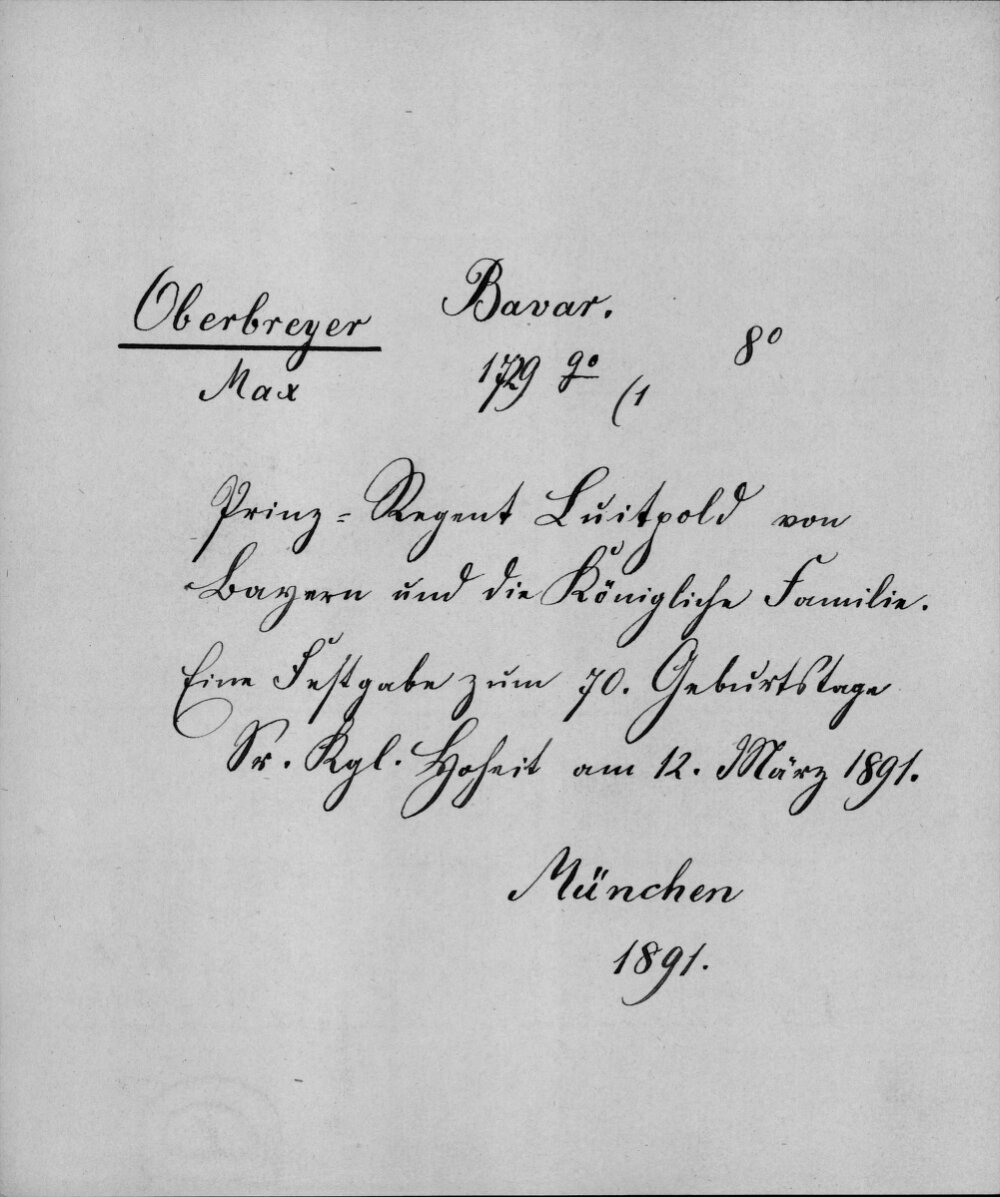 Oberbreyer
Max
Bavar.
1729 go (1
8o
Prinz=Regent Luitpold von
Bayern und die Königliche Familie.
Eine Festgabe zum 70. Geburtstage
Sr. Kgl. Hoheit am 12. März 1891.
München
1891.